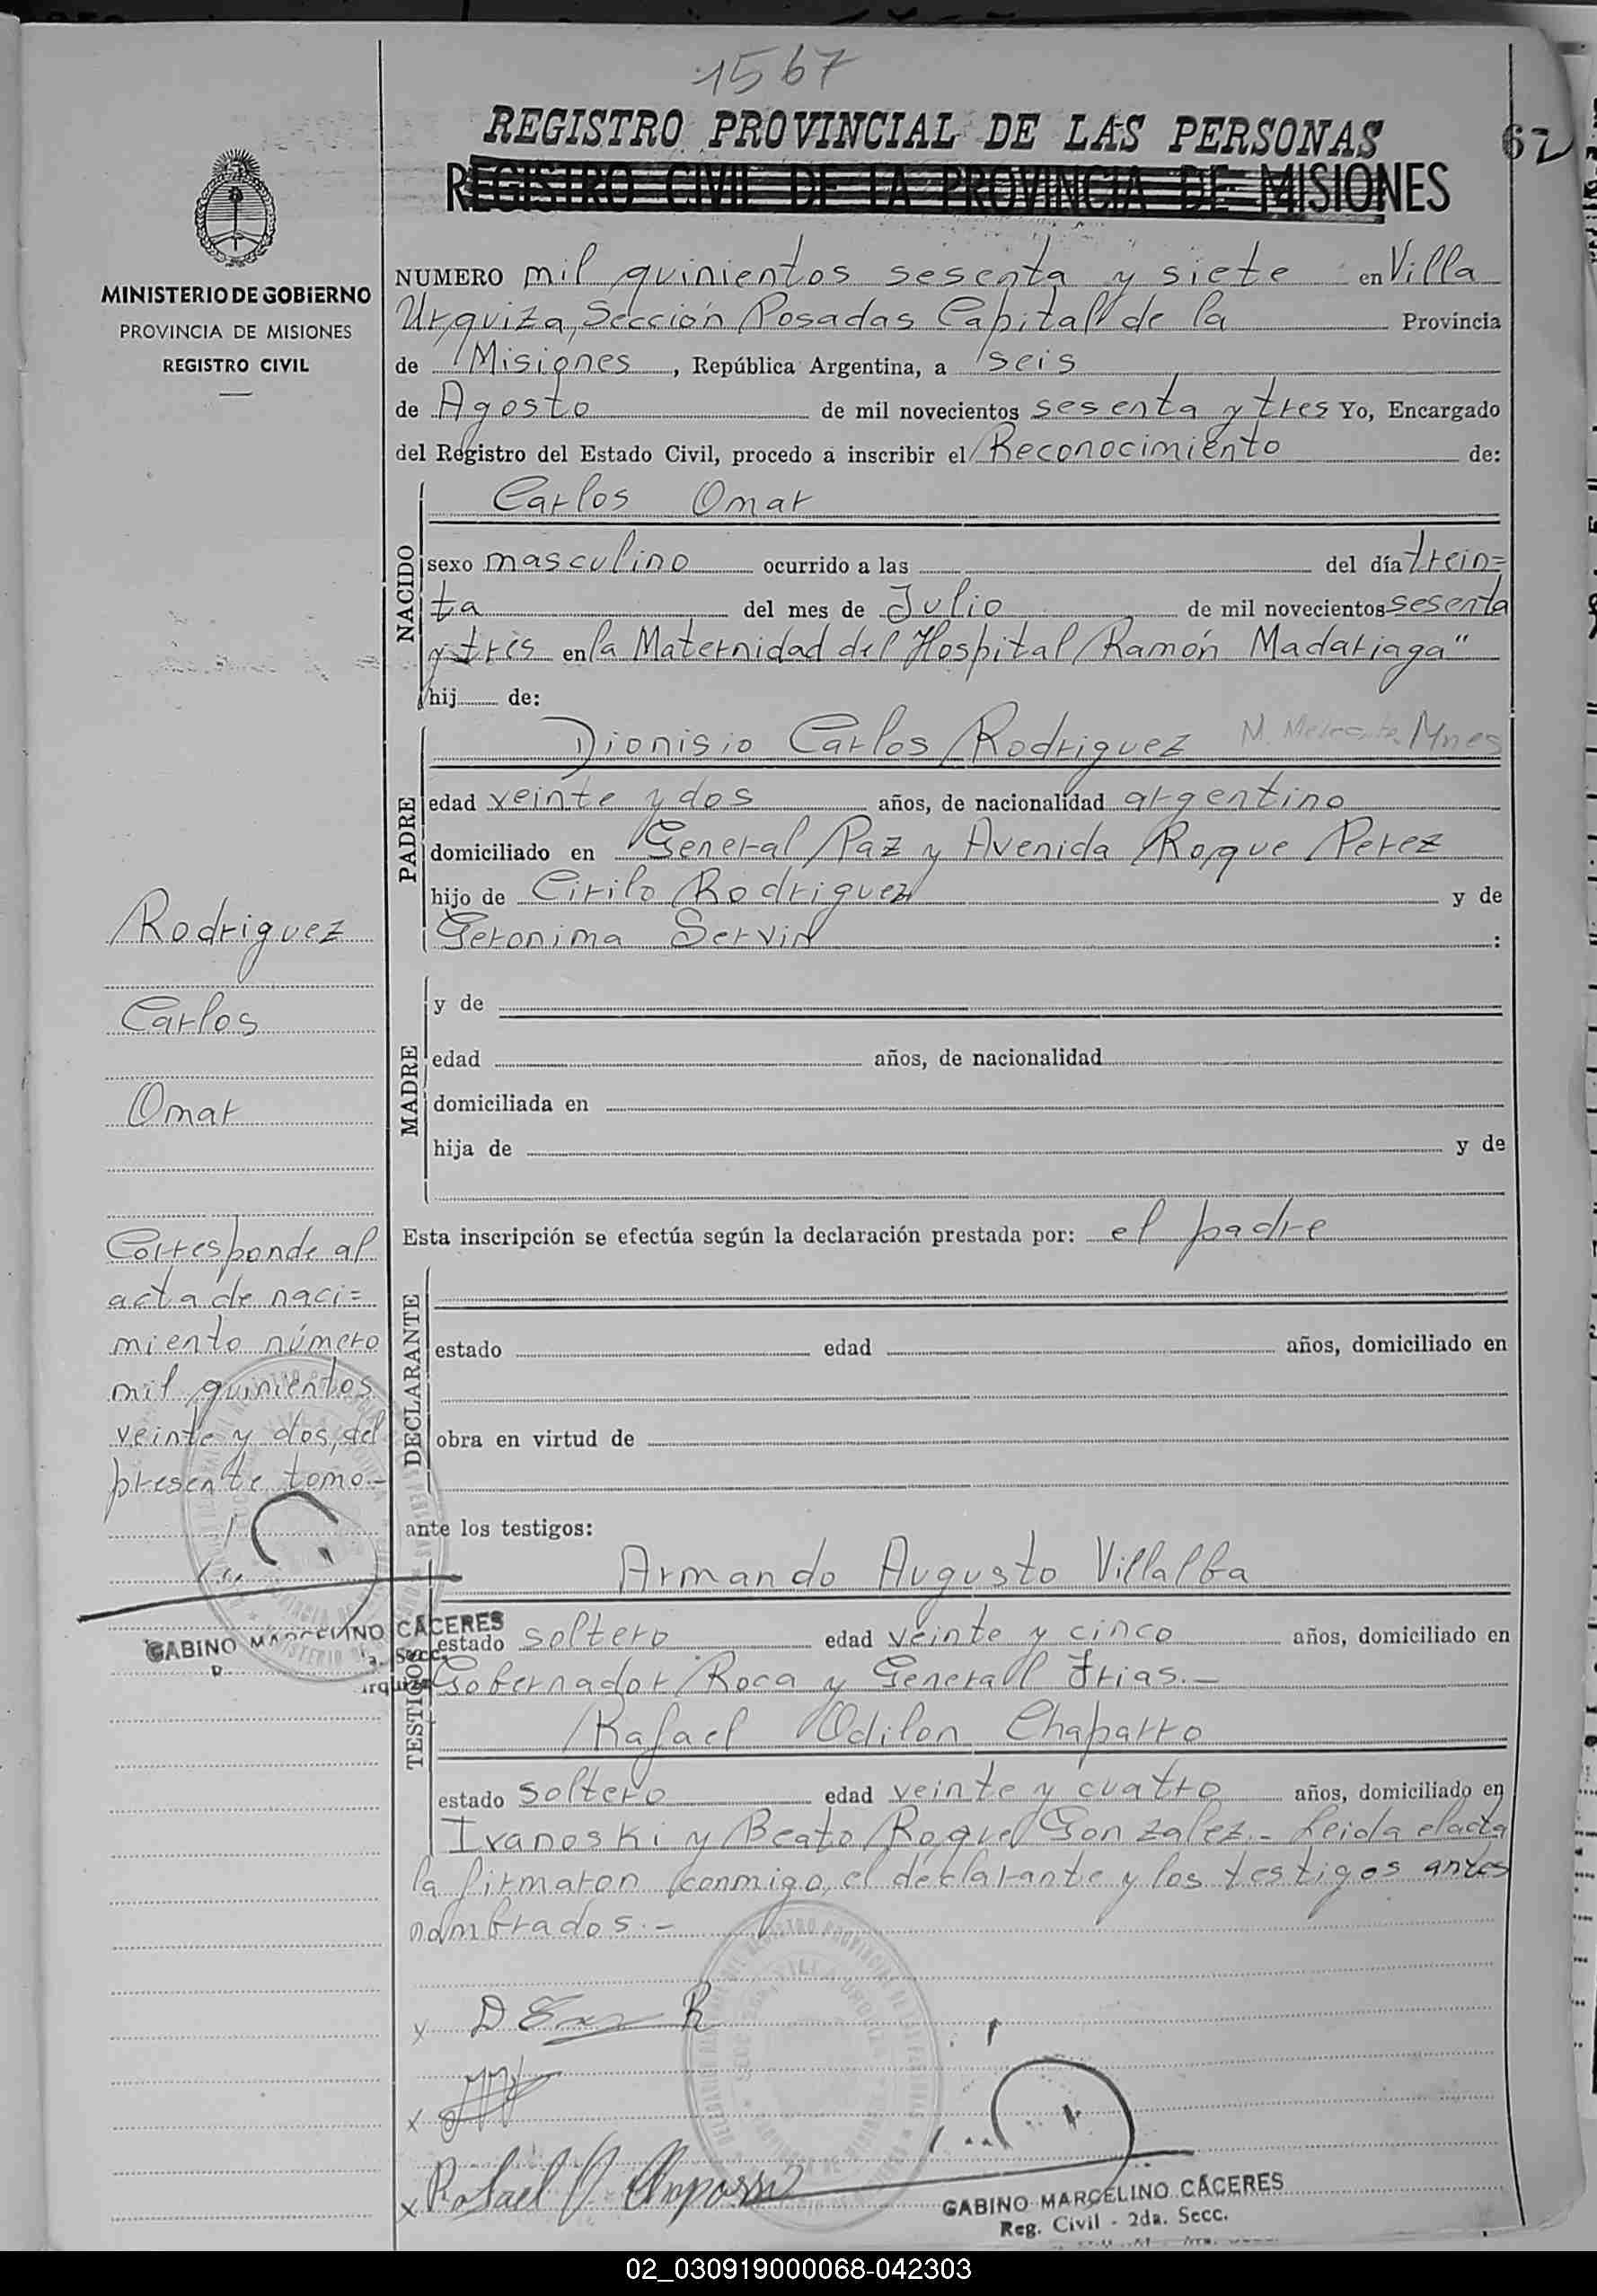 1567
REGISTRO PROVINCIAL DE LAS PERSONAS
62
REGISTRO CIVIL DE LA PROVINCIA DE MISIONES
MINISTERIO DE GOBIERNO
PROVINCIA DE MISIONES
REGISTRO CIVIL
NUMERO mil quinientos sesenta y siete en Villa
Urquiza, Sección Posadas Capital de la Provincia
de Misiones, República Argentina, a seis
de Agosto de mil novecientos sesenta y tres Yo, Encargado
del Registro del Estado Civil, procedo a inscribir el Reconocimiento de:
NACIDO
Carlos Omar
sexo masculino ocurrido a las del día trein=
ta del mes de Julio de mil novecientos sesenta
y trés en la Maternidad del Hospital Ramón Madariaga"
hij de:
PADRE
Dionisio Carlos Rodriguez M. Mnes
edad veinte y dos años, de nacionalidad argentino
domiciliado en General Paz y Avenida Roque Perez
hijo de Cirilo Rodriguez y de
Geronima Servin :
MADRE
y de
edad años, de nacionalidad
domiciliada en
hija de y de
Esta inscripción se efectúa según la declaración prestada por: el padre
DECLARANTE
estado edad años, domiciliado en
obra en virtud de
ante los testigos:
TESTIGOS
Armando Augusto Villalba
estado soltero edad veinte y cinco años, domiciliado en
Gobernador Roca y General Frias.-
Rafael Odilon Chaparro
estado soltero edad veinte y cuatro años, domiciliado en
Ivanoski y Beato Roque Gonzalez.- Leida el acta
la firmaron conmigo, el declarante y los testigos antes
nombrados.-
Rodriguez
Carlos
Omar
Corresponde al
acta de naci=
miento número
mil quinientos
veinte y dos, del
presente tomo.-
GABINO MARCELINO CÁCERES
x D R
x
x Rafael O
GABINO MARCELINO CÁCERES
Reg. Civil - 2da. Secc.
02_030919000068-042303